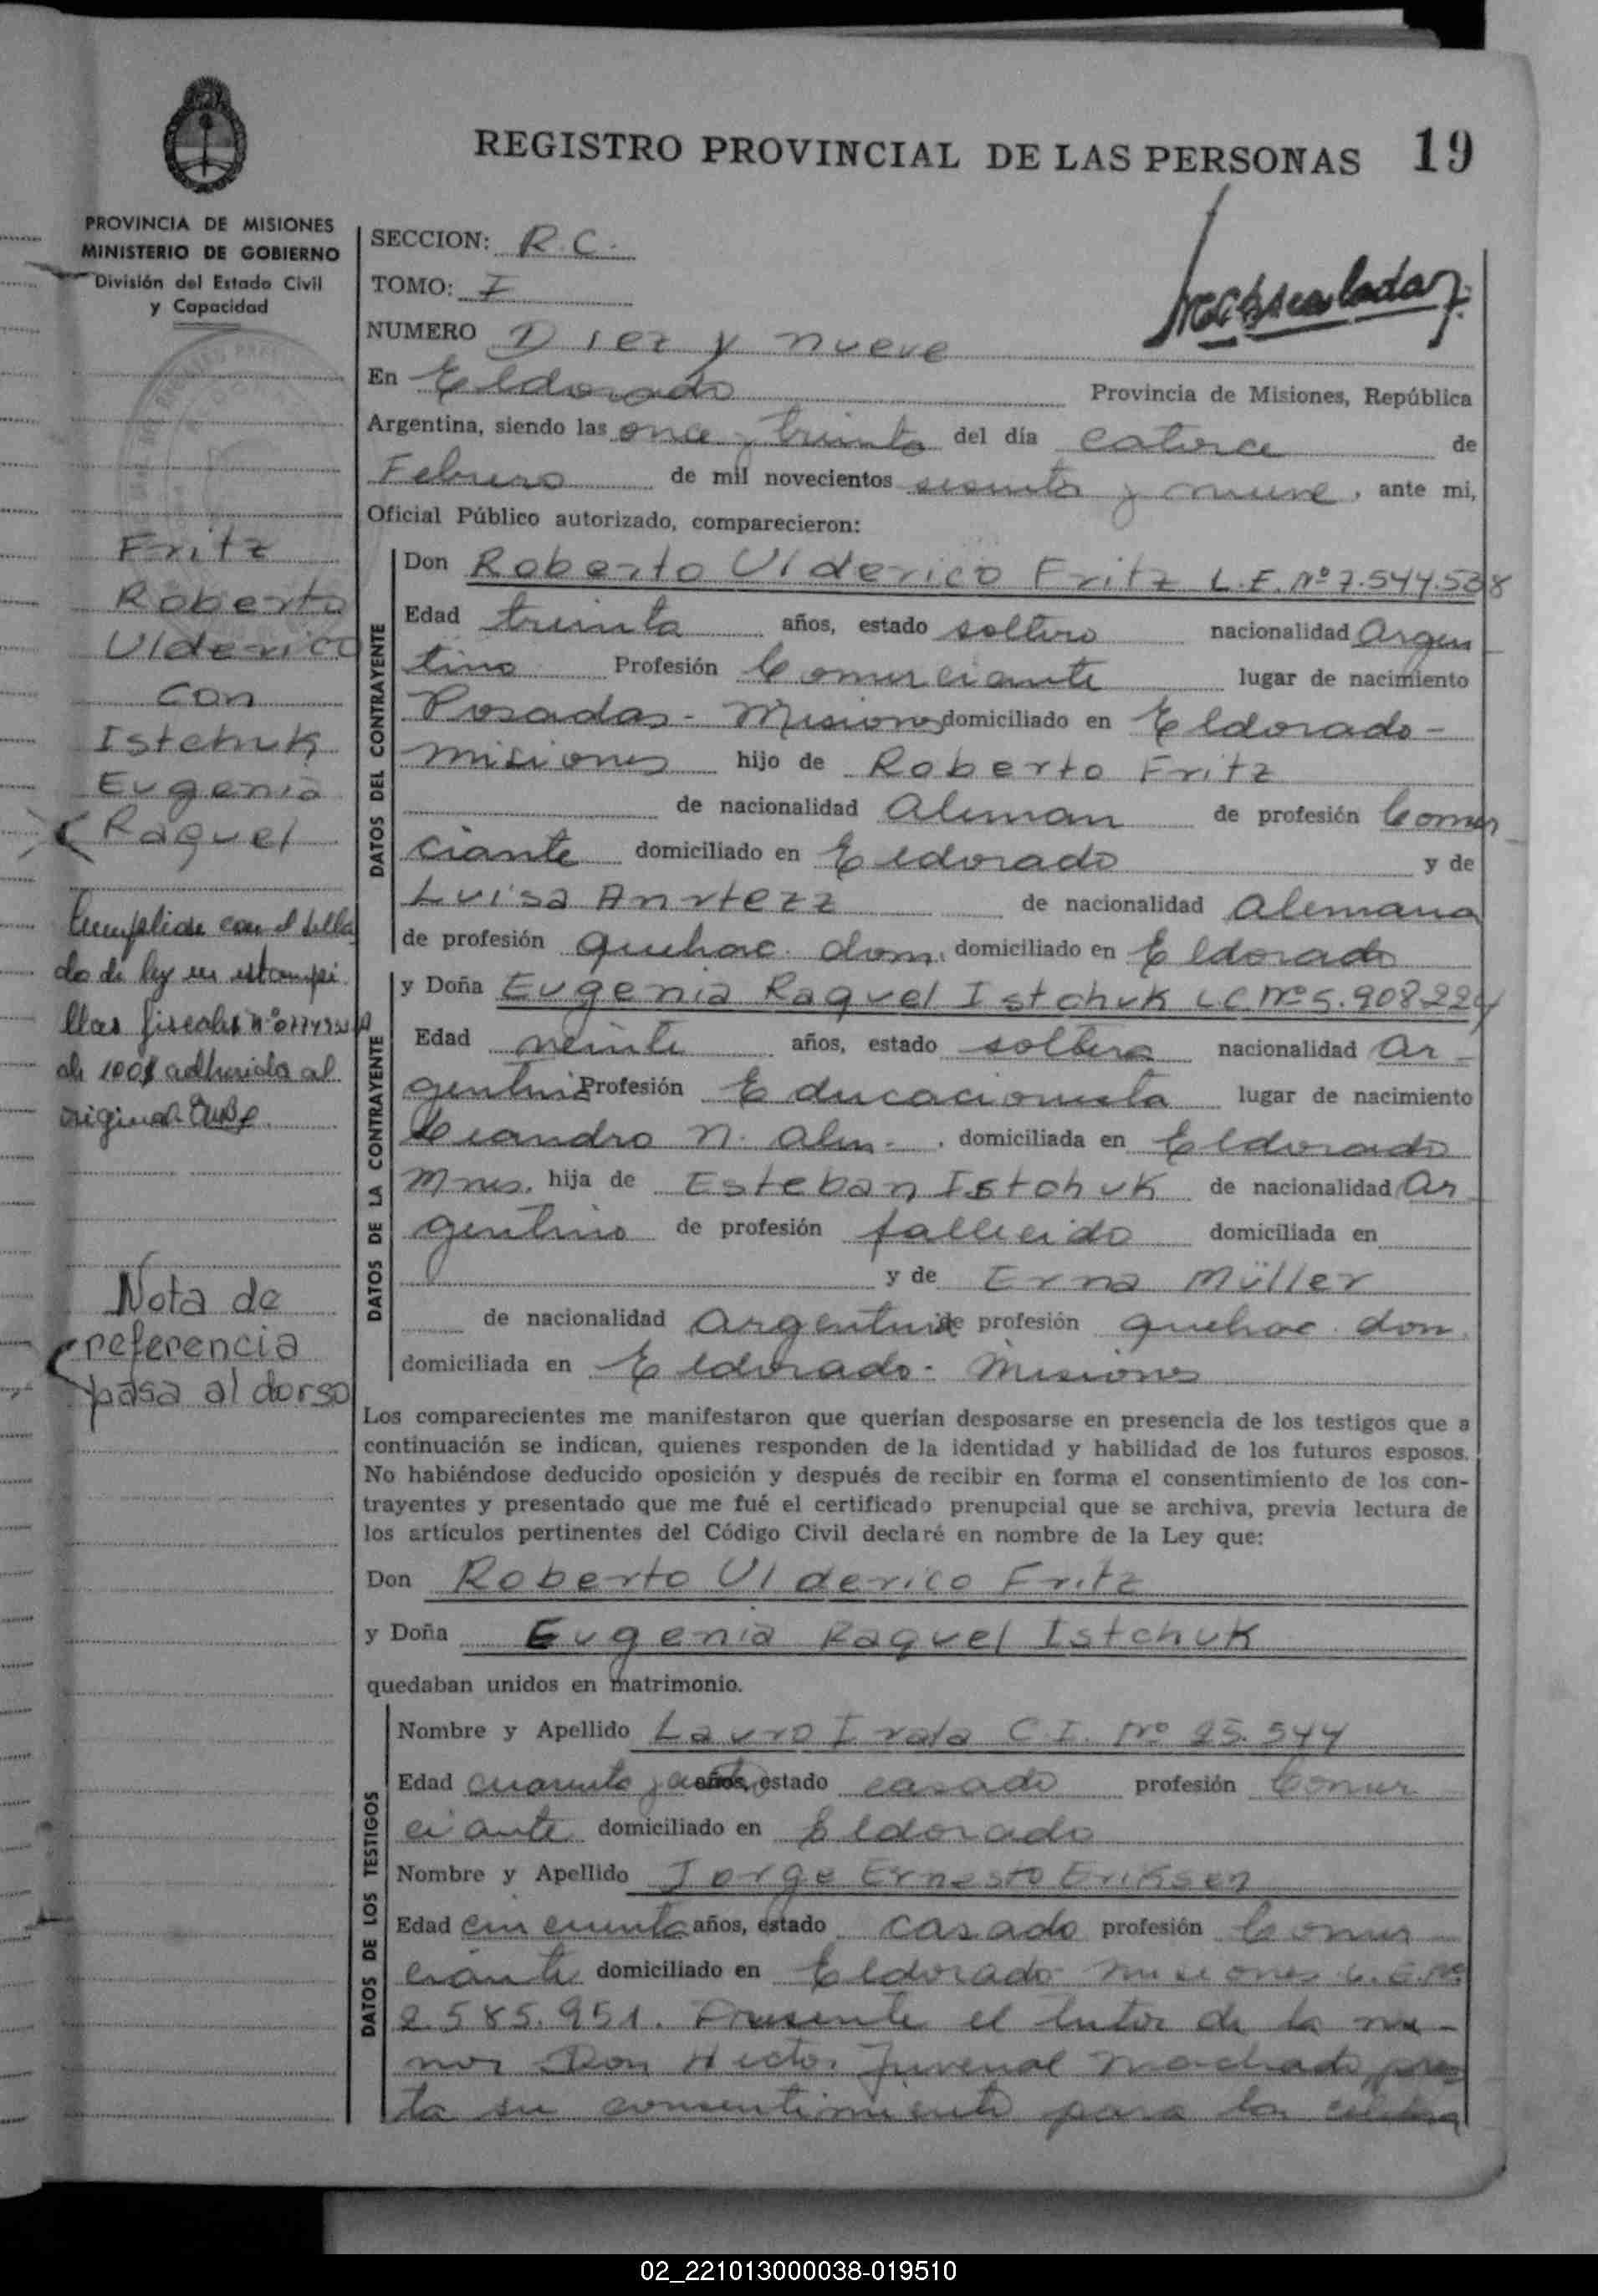 REGISTRO PROVINCIAL DE LAS PERSONAS 19
PROVINCIA DE MISIONES
MINISTERIO DE GOBIERNO
División del Estado Civil
y Capacidad
SECCION: R.C.
TOMO: I
NUMERO Diez y nueve
En Eldorado Provincia de Misiones, República
Argentina, siendo las once y treinta del día catorce de
Febrero de mil novecientos sesenta y nueve, ante mi,
Oficial Público autorizado, comparecieron:
Fritz
Roberto
Ulderico
con
Istchuk
Eugenia
Raquel
Cumplido con el sella
do de ley en estampi
llas fiscales Nº
de 100$ adherida al
original.
Nota de
referencia
pasa al dorso
DATOS DEL CONTRAYENTE
Don Roberto Ulderico Fritz L.E. Nº 7.544.538
Edad treinta años, estado soltero nacionalidad Argen
tino Profesión Comerciante lugar de nacimiento
Posadas - Misiones domiciliado en Eldorado -
Misiones hijo de Roberto Fritz
de nacionalidad Aleman de profesión Comer
ciante domiciliado en Eldorado y de
Luisa de nacionalidad Alemana
de profesión quehac. dom. domiciliado en Eldorado
DATOS DE LA CONTRAYENTE
y Doña Eugenia Raquel Istchuk L.C. Nº 5.908.224
Edad veinte años, estado soltera nacionalidad Ar
gentina Profesión Educacionista lugar de nacimiento
Leandro N. Alem - , domiciliada en Eldorado
Mnes. hija de Esteban Istchuk de nacionalidad Ar
gentino de profesión fallecido domiciliada en
y de Erna Müller
de nacionalidad Argentina de profesión quehac. dom.
domiciliada en Eldorado - Misiones
Los comparecientes me manifestaron que querían desposarse en presencia de los testigos que a
continuación se indican, quienes responden de la identidad y habilidad de los futuros esposos.
No habiéndose deducido oposición y después de recibir en forma el consentimiento de los con-
trayentes y presentado que me fué el certificado prenupcial que se archiva, previa lectura de
los artículos pertinentes del Código Civil declaré en nombre de la Ley que:
Don Roberto Ulderico Fritz
y Doña Eugenia Raquel Istchuk
quedaban unidos en matrimonio.
DATOS DE LOS TESTIGOS
Nombre y Apellido Lauro Irala C.I. Nº 25.544
Edad cuarenta y años, estado casado profesión Comer
ciante domiciliado en Eldorado
Nombre y Apellido Jorge Ernesto Eriksen
Edad cincuenta años, estado casado profesión Comer
ciante domiciliado en Eldorado Misiones L.E. Nº
2.585.951. Presente el tutor de la me-
nor Don Hector Juvenal Machado, pres
ta su consentimiento para la celebra
02_221013000038-019510